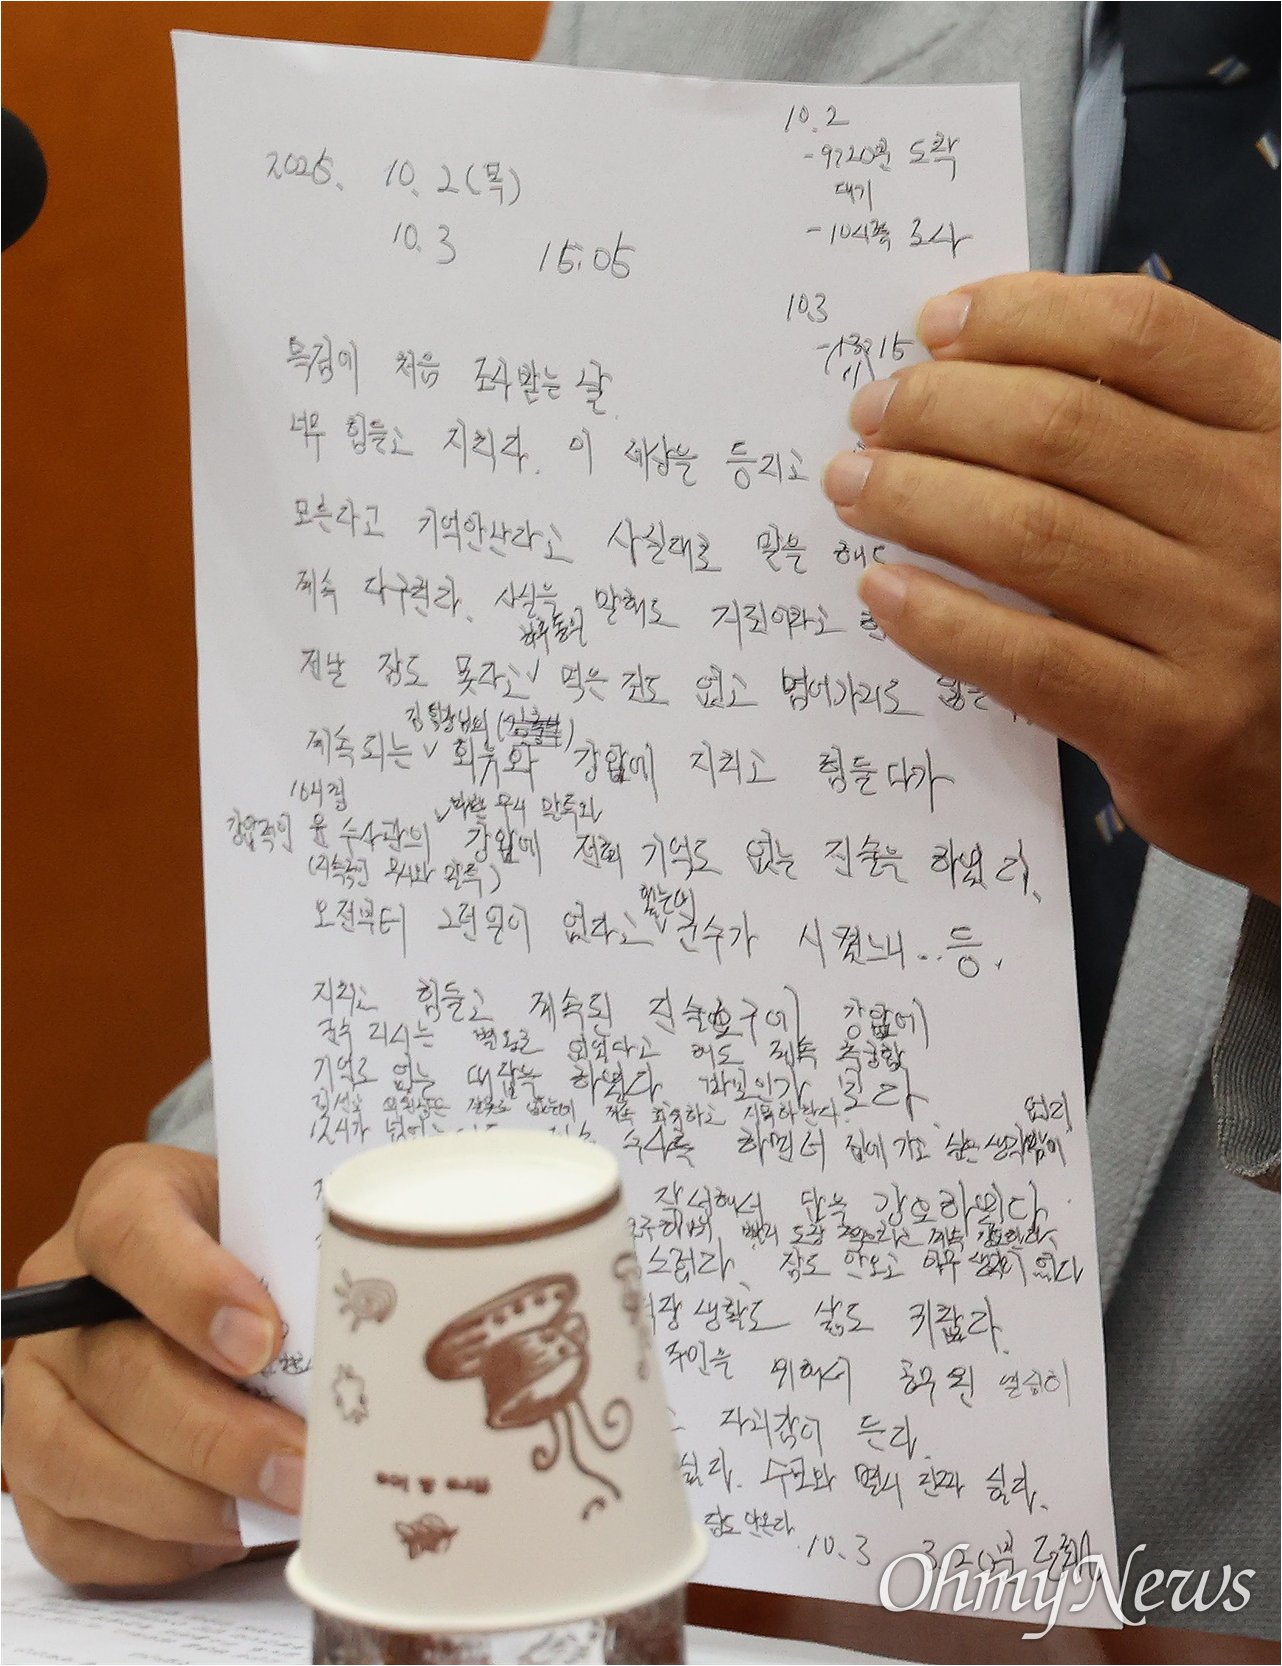 2025. 10. 2(목)
10. 3 15:05
10. 2
-9시20분 도착
대기
-10시쯤 조사
10.3
특검에 처음 조사받는 날.
너무 힘들고 지치다. 이 세상을 등지고
모른다고 기억안난다고 사실대로 말을 해도
계속 다그친다. 사실을 말해도 거짓이라고 한
전날 잠도 못자고 먹은 것도 없고
김 팀장님의
계속되는 회유와 강압에 지치고 힘들다가
무시 말투와
강압적인 윤 수사관의 강압에 전혀 기억도 없는 진술을 하였다.
(지속적인 무시와 말투)
오전부터 그런일이 없다라고 군수가 시켰느니.. 등.
지치고 힘들고 계속된 진술요구에 강압에
군수 지시는 별도로 없었다고 해도 계속 추궁함
기억도 없는 대답을 하였다. 바보인가 보다.
김선교 의원님은 잘못도 없는데 계속 회유하고 지목하란다.
빨리
12시가 수사를 하면서 집에 가고 싶은 생각밖에
작성해서 답을 강요하였다.
빨리 도장 찍으라고 계속 강요한다.
스럽다. 잠도 안오고 아무 생각이 없다
생활도 삶도 귀찮다.
주민을 위해서 공무원 열심히
자괴감이 든다.
싫다. 수모와 멸시 진짜 싫다.
잠도 안온다.
10. 3
OhmyNews
fire & ice